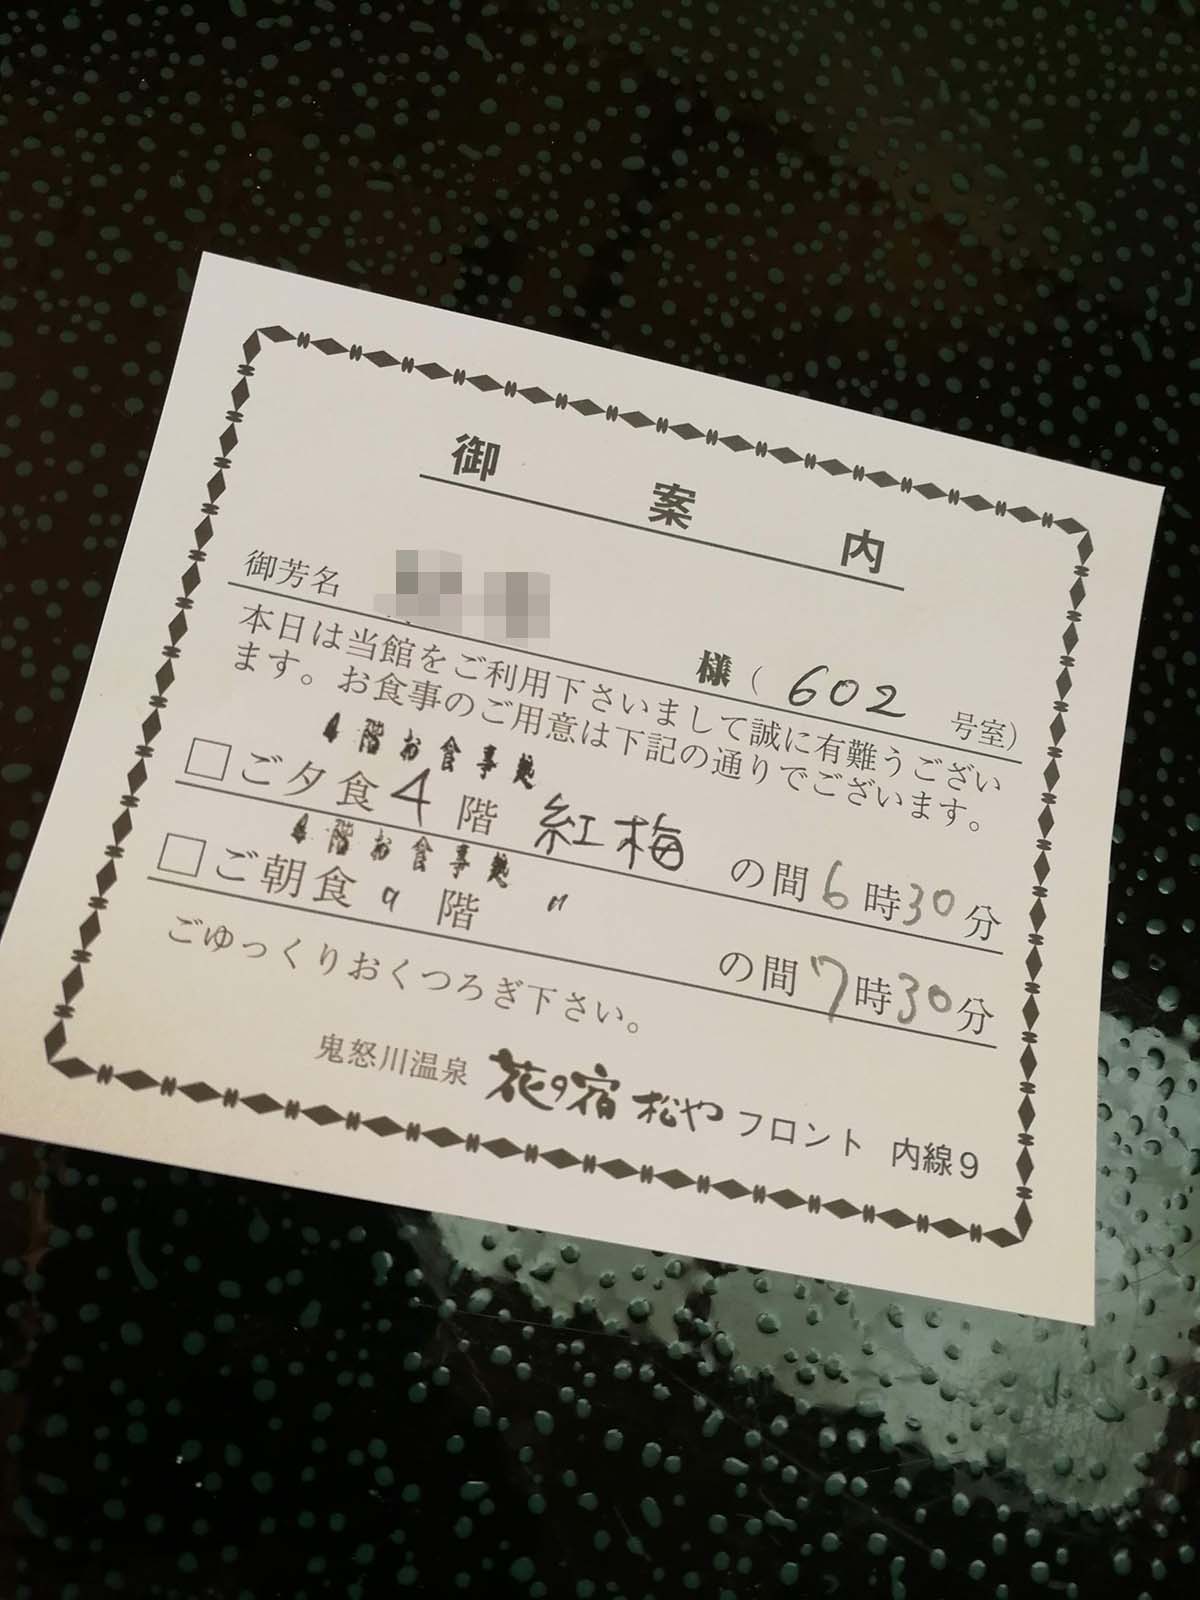 御案内
御芳名 様（602号室）
本日は当館をご利用下さいまして誠に有難うござい
ます。お食事のご用意は下記の通りでございます。
4階お食事処
□ご夕食4階 紅梅 の間6時30分
4階お食事処
□ご朝食〃階 〃 の間7時30分
ごゆっくりおくつろぎ下さい。
鬼怒川温泉 花の宿 松や フロント 内線9